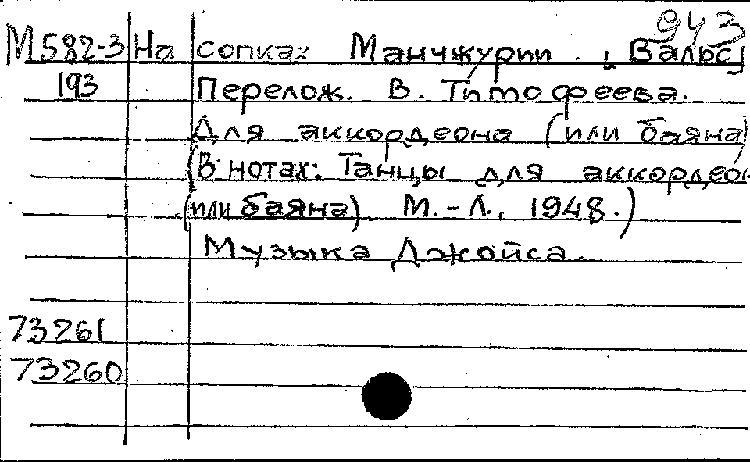 943
М582-3 На сопках Манчжурии. [Вальс]
193 Перелож. В. Тимофеева.
Для аккордеона (или баяна)
(В нотах: Танцы для аккордеон
(или баяна) М.-Л., 1948.)
Музыка Джойса.
73261
73260